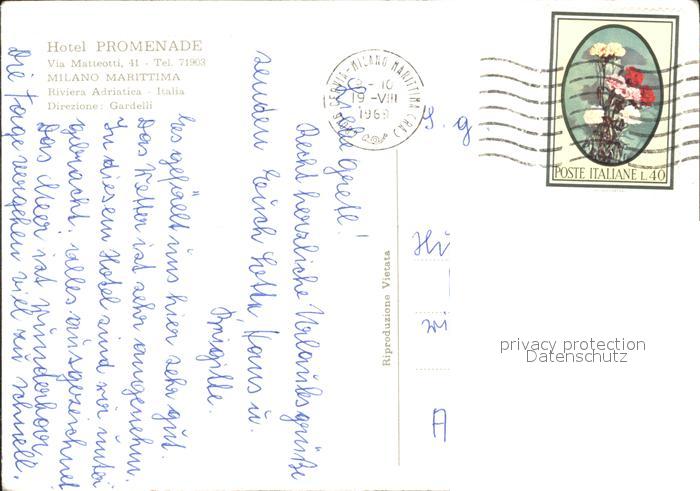 Hotel PROMENADE
Via Matteotti, 41 - Tel. 71903
MILANO MARITTIMA
Riviera Adriatica - Italia
Direzione: Gardelli
CERVIA-MILANO MARITTIMA
19-VIII
1969
POSTE ITALIANE L. 40
Riproduzione Vietata
S. g.
privacy protection
Datenschutz
Recht herzliche Urlaubsgrüße
senden Euch Lotte, Hans u.
Brigitte.
Es gefällt uns hier sehr gut.
Das Wetter ist sehr angenehm.
In diesem Hotel sind wir unter
gebracht, alles ausgezeichnet
Das Meer ist wunderbar
Die Tage vergehen viel zu schnell.